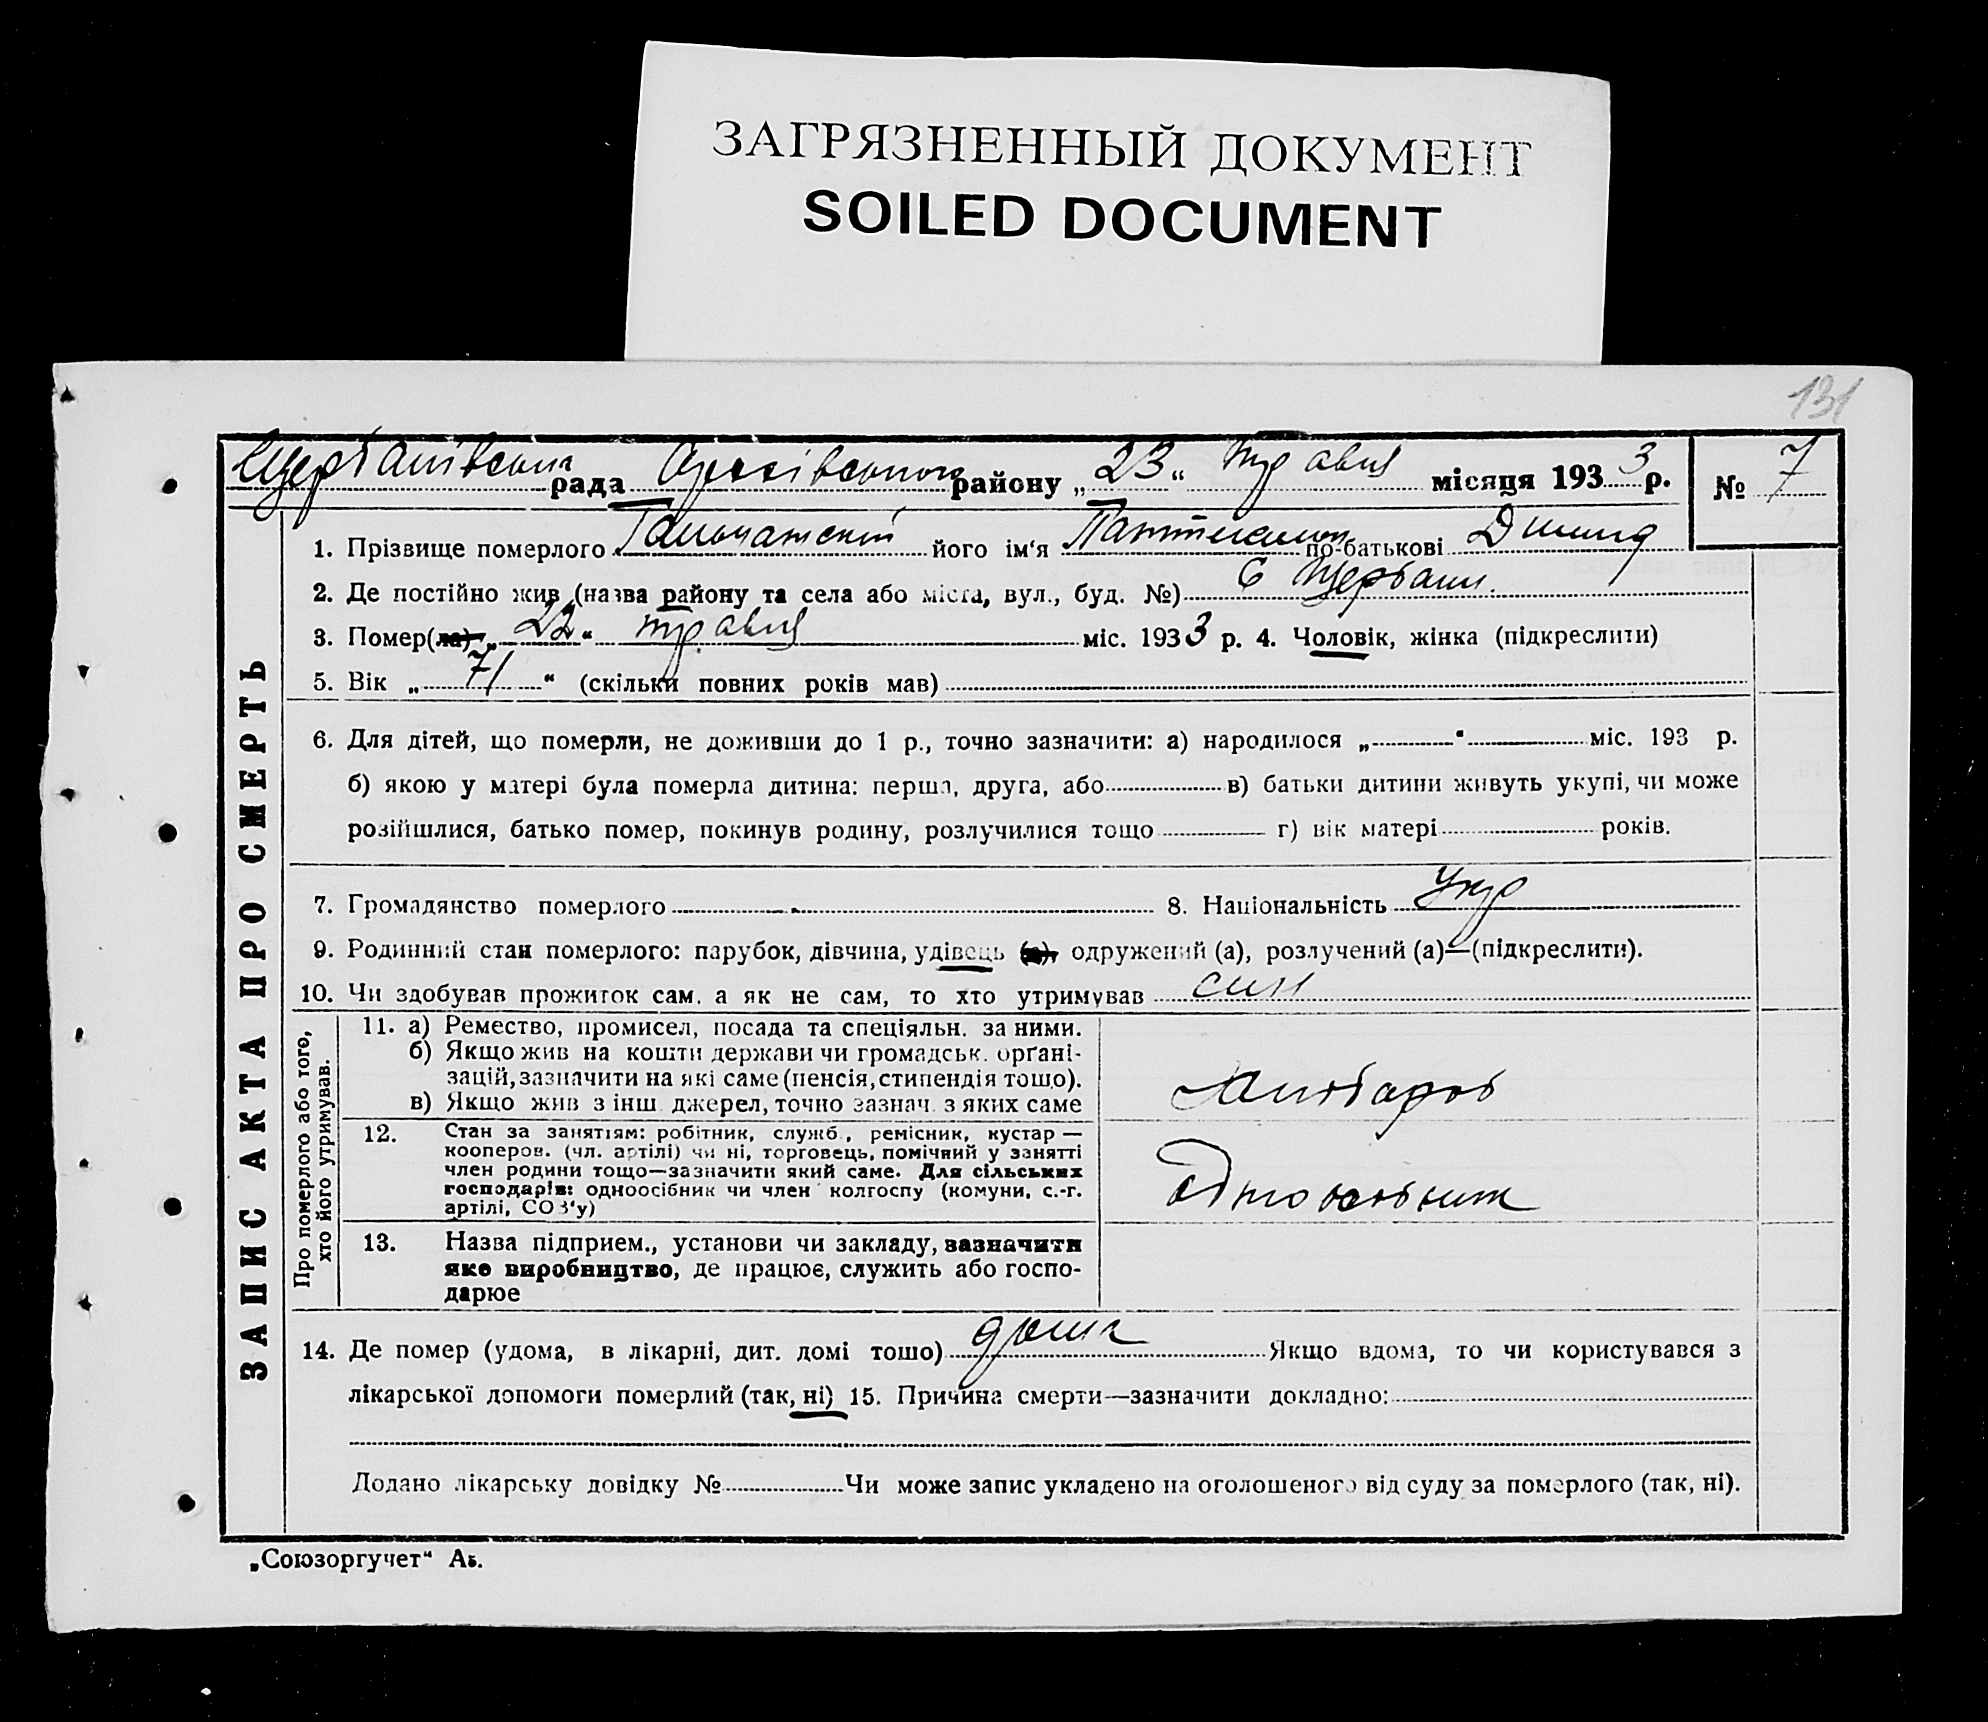 ЗАГРЯЗНЕННЫЙ ДОКУМЕНТ
SOILED DOCUMENT
131
рада району „23“ травня місяця 1933 р. № 7
ЗАПИС АКТА ПРО СМЕРТЬ
1. Прізвище померлого його ім‘я по-батькові
2. Де постійно жив (назва району та села або міста, вул., буд. №) с Щербани.
3. Помер(ла) „22“ травня міс. 1933 р. 4. Чоловік, жінка (підкреслити)
5. Вік „71“ (скільки повних років мав)
6. Для дітей, що померли, не доживши до 1 р., точно зазначити: а) народилося „ “ міс. 193 р.
б) якою у матері була померла дитина: перша, друга, або в) батьки дитини живуть укупі, чи може
розійшлися, батько помер, покинув родину, розлучилися тощо г) вік матері років.
7. Громадянство померлого 8. Національність Укр
9. Родинний стан померлого: парубок, дівчина, удівець (а), одружений (а), розлучений (а)—(підкреслити).
10. Чи здобував прожиток сам, а як не сам, то хто утримував син
Про померлого або того,
хто його утримував.
11. а) Ремество, промисел, посада та спеціяльн. за ними.
б) Якщо жив на кошти держави чи громадськ. орґані-
зацій, зазначити на які саме (пенсія, стипендія тощо).
в) Якщо жив з інш. джерел, точно зазнач. з яких саме
хлібороб
12. Стан за занятіям: робітник, служб., ремісник, кустар —
кооперов. (чл. артілі) чи ні, торговець, помічний у занятті
член родини тощо—зазначити який саме. Для сільських
господарів: одноосібник чи член колгоспу (комуни, с.-г.
артілі, СОЗ‘у)
одноосібник
13. Назва підприєм., установи чи закладу, зазначити
яке виробництво, де працює, служить або госпо-
дарює
14. Де помер (удома, в лікарні, дит. домі тощо) дома Якщо вдома, то чи користувався з
лікарської допомоги померлий (так, ні) 15. Причина смерти—зазначити докладно:
Додано лікарську довідку № Чи може запис укладено на оголошеного від суду за померлого (так, ні).
„Союзоргучет“ Аб.